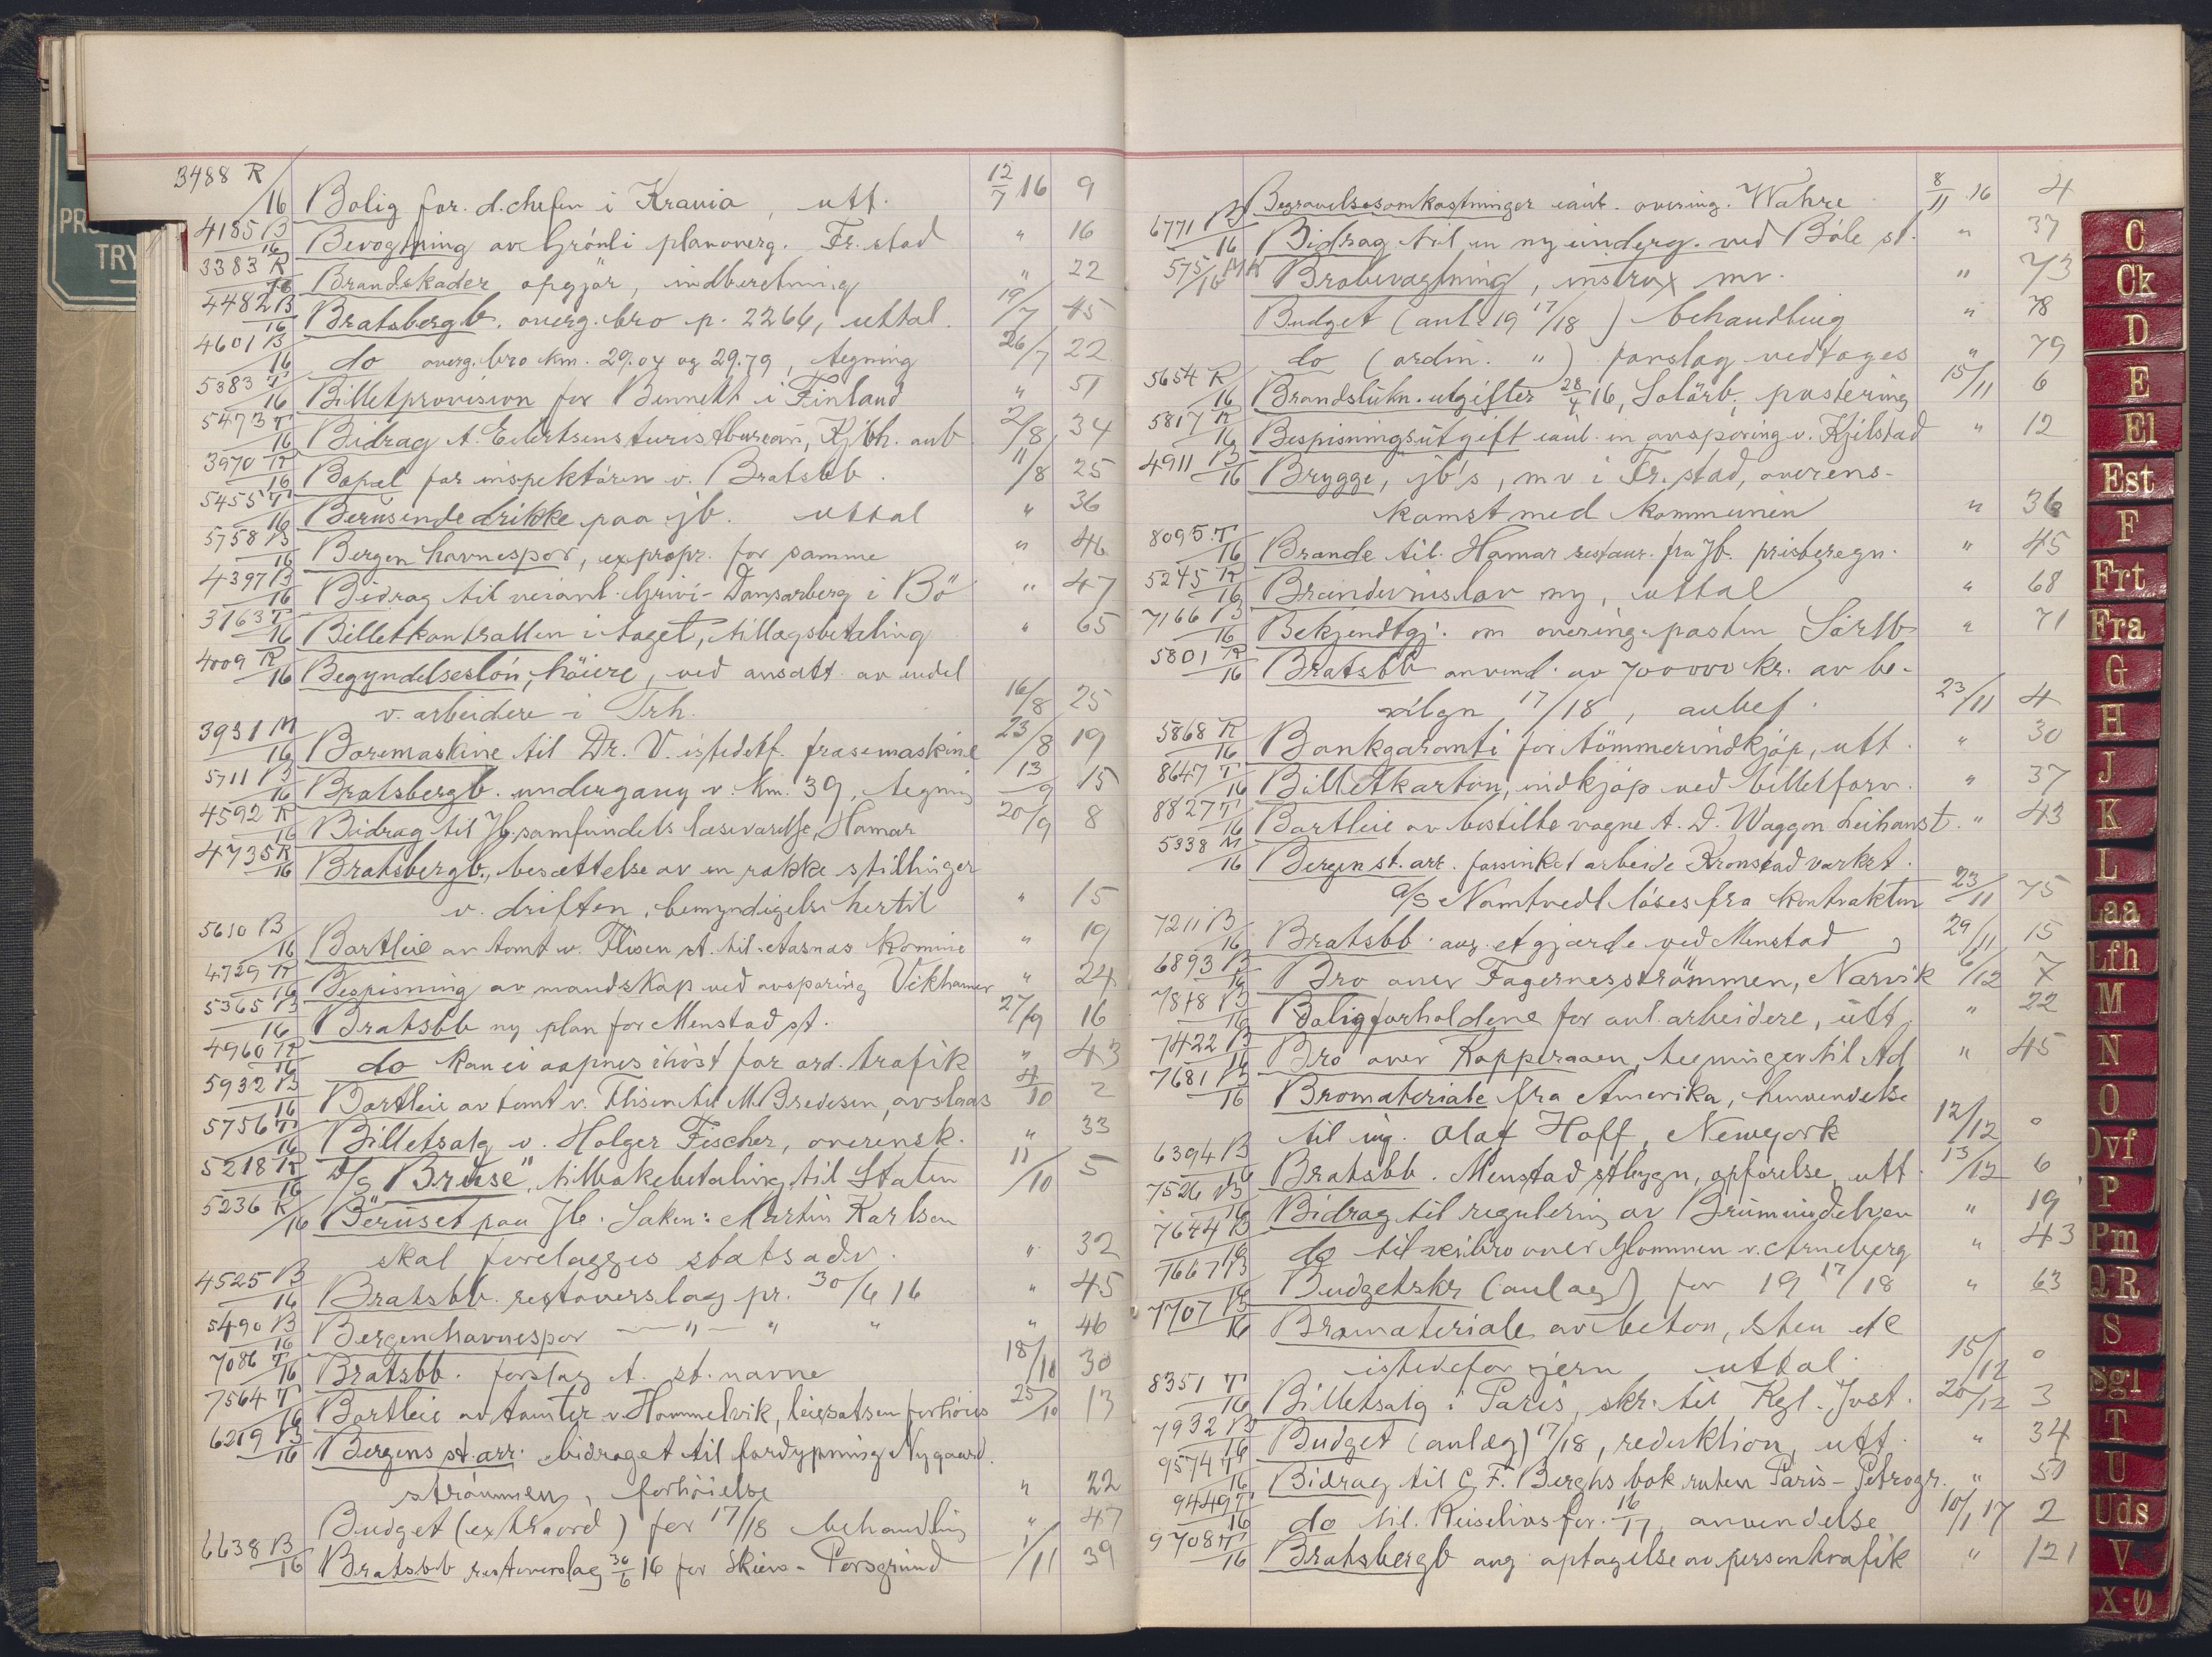 3488 R/16 Bolig for d.chefen i Krania, utt. 12/7 16 9
4185 B/16 Bevogtning av Grönli planoverg. Fr.stad " 16
3383 R/16 Brandskader opgjör, indberetning " 22
4482 B/16 Bratsbergb. overg.bro p. 2266, uttal. 19/7 45
4601 B/16 do overg.bro km. 29.04 og 29.79, tegning 26/7 22
5383 T/16 Billetprovision for Bennett i Finland " 51
5473 T/16 Bidrag t. Eilertsens turistbureau, Kjbh. anb 2/8 34
3970 R/16 Bopæl for inspektören v. Bratsbb. 11/8 25
5455 T/16 Berusende drikke paa jb. uttal " 36
5758 B/16 Bergen havnespor, expropr. for samme " 46
4397 B/16 Bidrag til veianl. Grivi-Dansarberg i Bö " 47
3763 T/16 Billetkontrollen i toget, tillægsbetaling " 65
4009 R/16 Begyndelseslön, höiere, ved ansatt. av endel
v. arbeidere i Trh. 16/8 25
3931 M/16 Boremaskine til Dr. V. istedetf. fræsemaskine 23/8 19
5711 B/16 Bratsbergb. undergang v. km. 39, tegning 13/9 15
4592 R/16 Bidrag til Jb.samfundets læseværelse, Hamar 20/9 8
4735 R/16 Bratsbergb., besættelse av en række stillinger
v. driften, bemyndigelse hertil " 15
5610 B/16 Bortleie av tomt v. Flisen st. til Aasnæs komune " 19
4729 R/16 Bespisning av mandskap ved avsporing Vikhamer " 24
5365 B/16 Bratsbb ny plan for Menstad st. 27/9 16
4960 R/16 do kan ei aapnes ihöst for ord. trafik " 43
5932 B/16 Bortleie av tomt v. Flisen til M. Bredesen, avslaas 4/10 2
5756 T/16 Billetsalg v. Holger Fischer, overensk. " 33
5218 R/16 D/S "Bruse", tilbakebetaling til Staten 11/10 5
5236 R/16 Beruset paa Jb. Saken: Martin Karlsen
skal forelægges statsadv. " 32
4525 B/16 Bratsbb. restoverslag pr. 30/6 16 " 45
5490 B/16 Bergen havnespor — " — " " " 46
7086 T/16 Bratsbb. forslag t. st.navne 18/10 30
7564 T/16 Bortleie av tomter v. Hommelvik, leiesatsen forhöies 25/10 13
6219 B/16 Bergens st.arr. bidraget til fordypning Nygaard.
strömmen, forhöielse " 22
Budget (extraord) for 17/18 behandling " 47
6638 B/16 Bratsbb restoverslag 30/6 16 for Skien-Porsgrund 1/11 39
Begravelsesomkostninger overing. Wahre 8/11 16 4
6771 B/16 Bidrag til en ny underg. ved Böle st. " 37
575/16 MK Brobevagtning, instrux mv. " 73
Budget (anl. 19 17/18) behandling " 78
do (ordin. ") forslag vedtages " 79
5654 R/16 Brandslukn.utgifter 28/4 16, Solörb, postering 15/11 6
5817 R/16 Bespisningsutgift en avsporing v. Kjelstad " 12
4911 B/16 Brygge, jb's, mv i Fr.stad, overens-
komst med kommunen " 36
8095 T/16 Brænde til Hamar restaur. fra Jb. prisberegn. " 45
5245 R/16 Brændevinslov ny, uttal " 68
7166 B/16 Bekjendtgj. om overing.posten Sörlb " 71
5801 R/16 Bratsbb anvend. av 700000 kr. av be-
vilgn 17/18, anbef. 23/11 4
5868 R/16 Bankgaranti for tömmerindkjöp, utt. " 30
8647 T/16 Billetkarton, indkjöp ved billetforv. " 37
8827 T/16 Bortleie av bestilte vogne t. D. Waggon Leihanst. " 43
5338 M/16 Bergen st. arr. forsinket arbeide Kronstad værkst.
A/S Namtvedt löses fra kontrakten 23/11 75
7211 B/16 Bratsbb. ang. et gjærde ved Menstad 29/11 15
6893 B/16 Bro over Fagernesströmmen, Narvik 6/12 7
7878 B/16 Boligforholdene for anl. arbeidere, utt. " 22
7422 B/16 Bro over Kopperaaen, tegninger til Ad " 45
7681 B/16 Bromateriale fra Amerika, henvendelse
til ing. Olaf Hoff, Newyork 12/12 0
6394 B/16 Bratsbb. Menstad stbygn, opförelse, utt. 13/12 6
7526 B/16 Bidrag til regulering av Brumundelven " 19
7644 B/16 do til veibro over Glommen v. Arneberg " 43
7667 B/16 Budgetskr (anlæg) for 19 17/18 " 63
7707 B/16 Bromateriale av beton, sten etc
istedefor jern uttal. 15/12 0
8351 T/16 Billetsalg i Paris, skr. til Kgl. Just. 20/12 3
7932 B/16 Budget (anlæg) 17/18, reduktion, utt. " 34
9574 T/16 Bidrag til C. F. Berghs bok ruten Paris-Petrogr. " 50
9449 T/16 do til Reiselivsfor. 16/17 anvendelse 10/1 17 2
9708 T/16 Bratsbergb ang optagelse av persontrafik " 121
C
Ck
D
E
El
Est
F
Frt
Fra
G
H
J
K
L
Laa
Lfh
M
N
O
Ovf
P
Pm
QR
S
Sgl
T
U
Uds
V
X-Ø